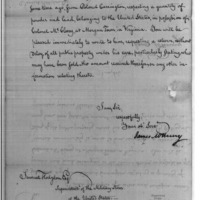 time ago, from Colonel Carrington, respecting a quantity of
powder and lead, belonging to the United States, in possession of a
Colonel McCleery at Morgan Town in Virginia. You will be
pleased immediately to write to him, requesting a return without
delay of all public property under his care, particularly stating what
may have been sold, the amount received therefore or any other in-
formation relating thereto.
I am, Sir,
respectfully,
Your ob. Serv.
James McHenry
Samuel Hodgdon Esq.
Superintendent of the Military Stores
of the United States